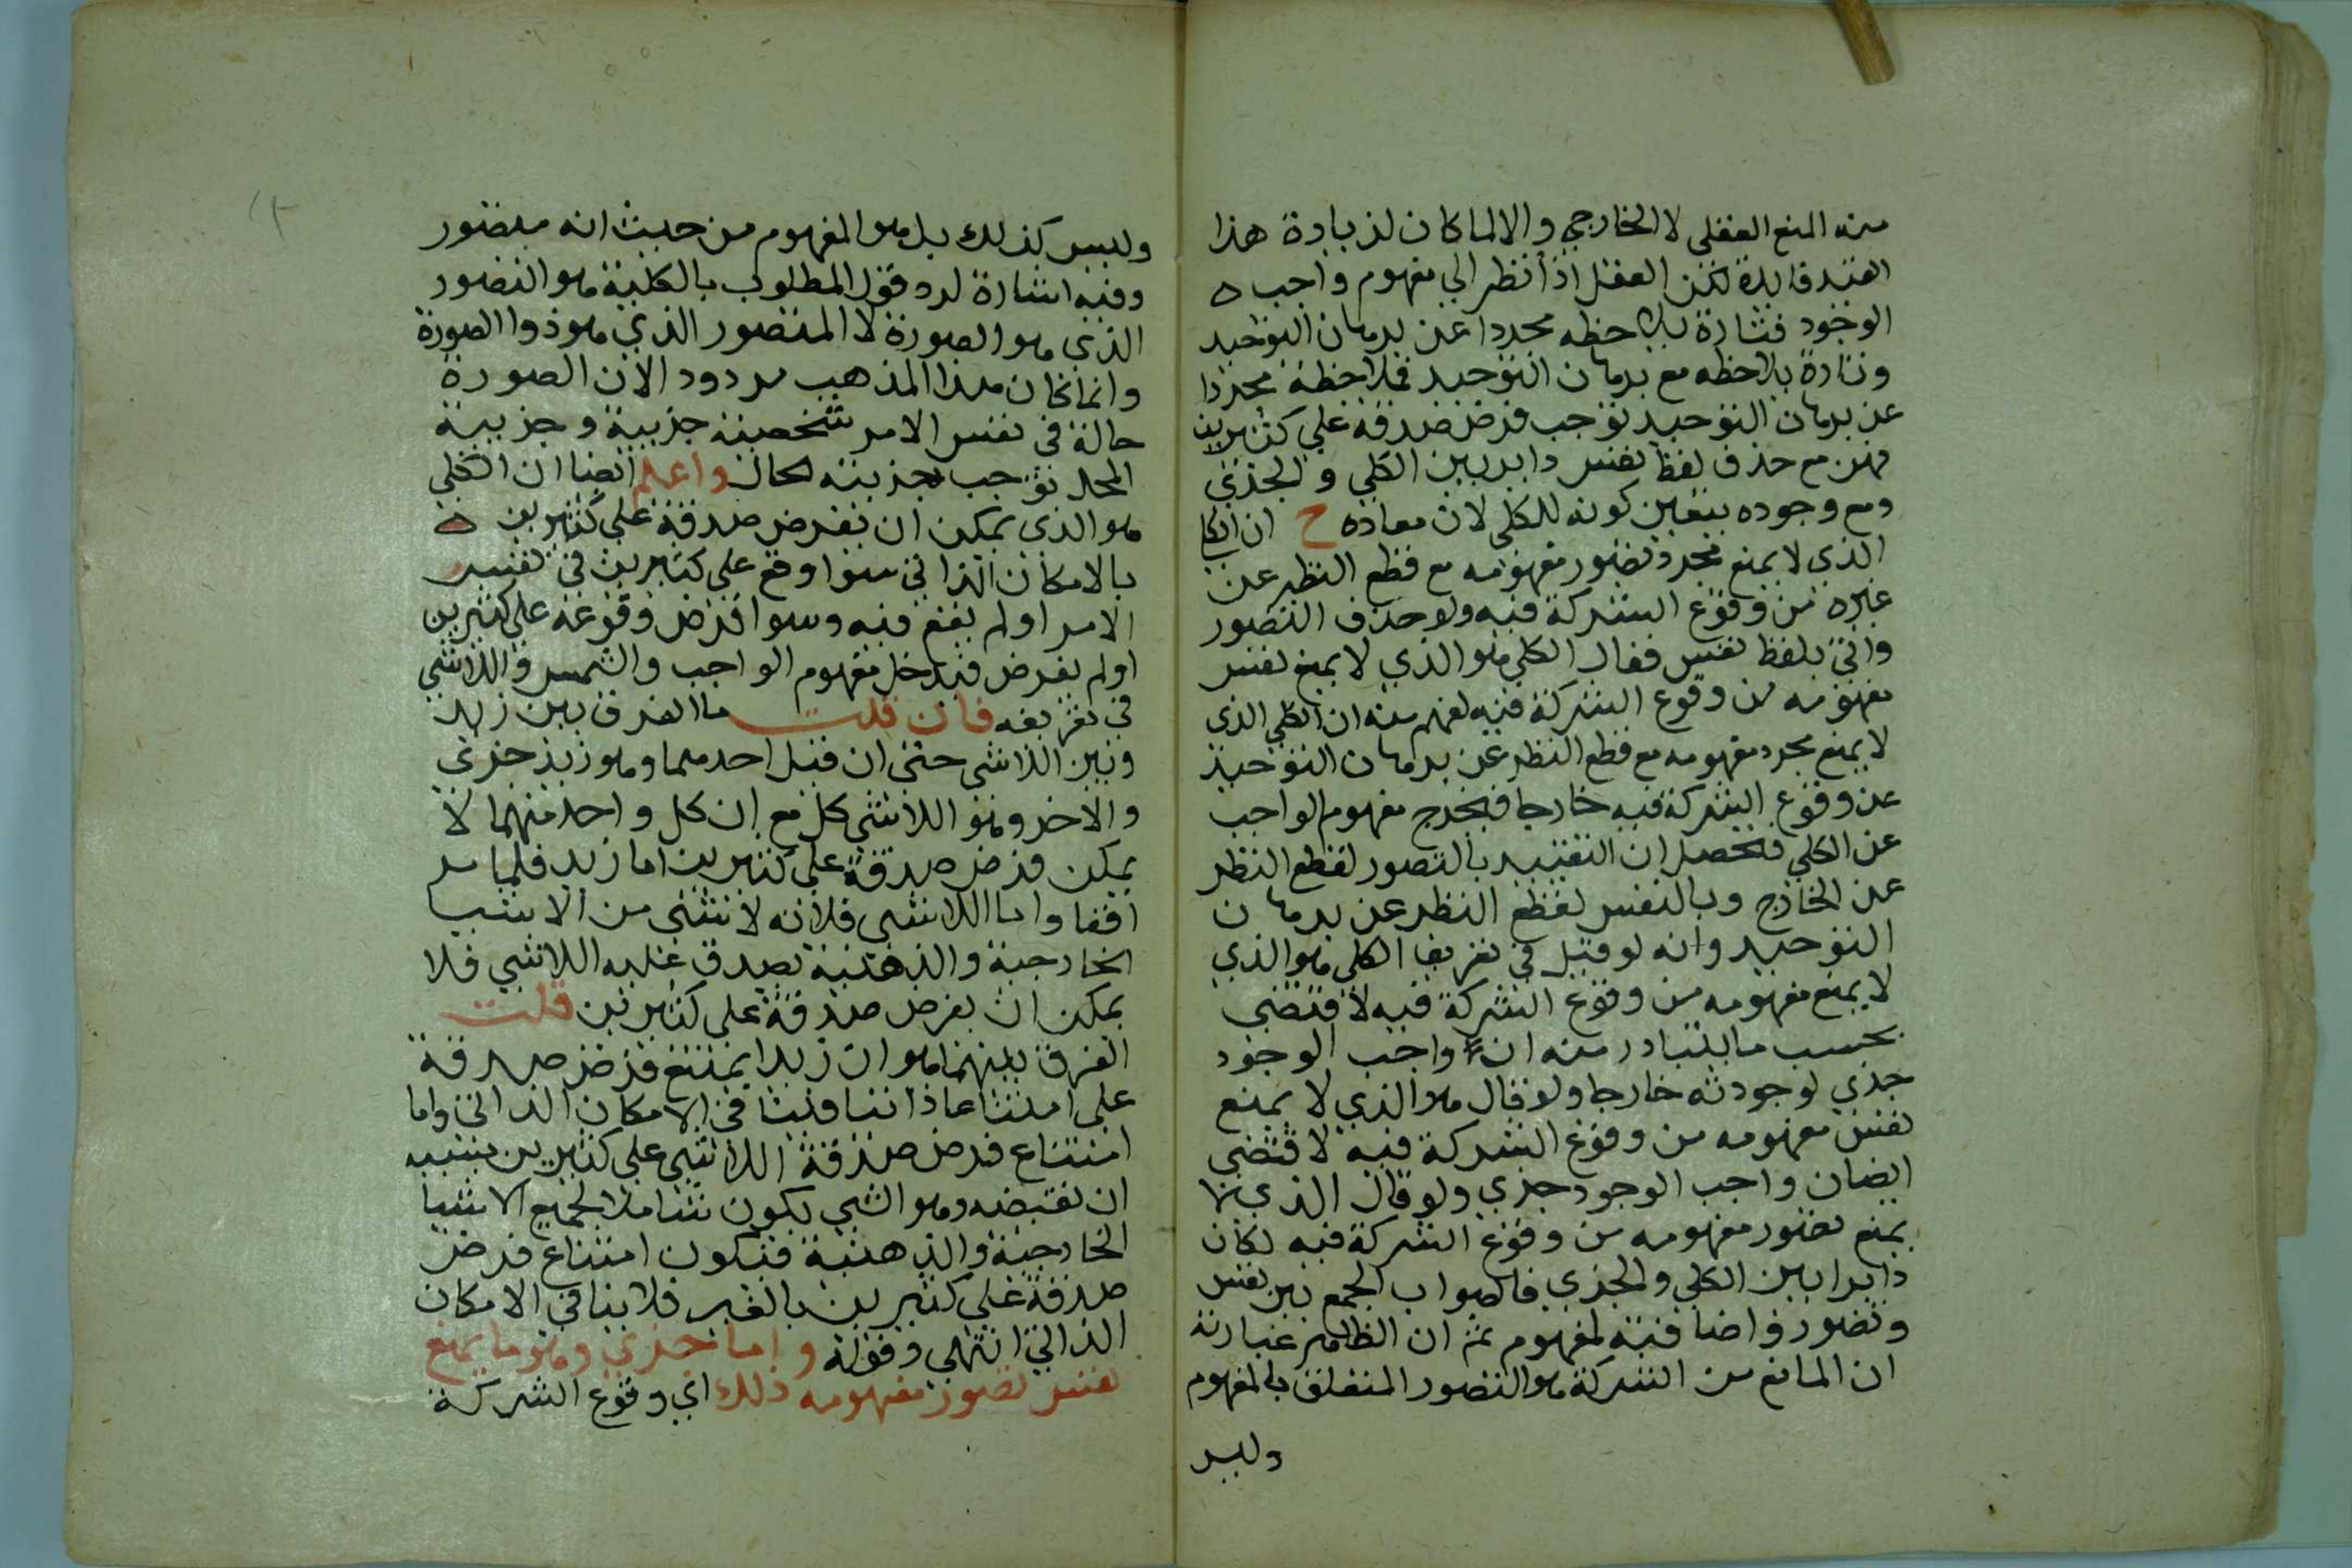 منه المنع العقلي لا الخارجي والا لما كان لزيادة هذا
القيد فايدة لكن العقل اذا نظر الي مفهوم واجب
الوجود فتارة يلاحظه مجردا عن برهان التوحيد
وتارة يلاحظه مع برهان التوحيد فملاحظة مجردا
عن برهان التوحيد توجب فرض صدقه علي كثيرين
فهن مع حذف لفظ نفس داير بين الكلي والجزي
ومع وجوده يتعين كونه للكلي لان مفاده ح ان الكلي
الذي لا يمنع مجرد تصور مفهومه مع قطع النظر عن
غيره من وقوع الشركة فيه ولو حذف التصور
واتي بلفظ نفس فقال الكلي هو الذي لا يمنع نفس
مفهومه من وقوع الشركة فيه لفهم منه ان الكلي الذي
لا يمنع مجرد مفهومه مع قطع النظر عن برهان التوحيد
عن وقوع الشركة فيه خارجا فيخرج مفهوم الواجب
عن الكلي فتحصل ان التقييد بالتصور لقطع النظر
عن الخارج وبالنفس لقطع النظر عن برهان
التوحيد وانه لو قيل في تعريف الكلي هو الذي
لا يمنع مفهومه من وقوع الشركة فيه لاقتضي
بحسب ما يتبادر منه ان واجب الوجود
جزي لوجودته خارجا ولو قال هو الذي لا يمنع
نفس مفهومه من وقوع الشركة فيه لاقتضي
ايضا ان واجب الوجود جزي ولو قال الذي لا
يمنع تصور مفهومه من وقوع الشركة فيه لكان
دايرا بين الكلي والجزي فالصواب الجمع بين نفس
وتصور واضافته لمفهوم ثم ان الظاهر عبارته
ان المانع من الشركة هو التصور المتعلق بالمفهوم
وليس
وليس كذلك بل هو المفهوم من حيث انه متصور
وفيه اشارة لرد قول المطلوب بالكلية هو التصور
الذي هو الصورة لا المتصور الذي هو ذوا الصورة
وانما كان هذا المذهب مردود الان الصورة
حالة في نفس الامر شخصية جزيية وجزيية
المحل توجب جزيته الحال واعلم ايضا ان الكلي
هو الذي يمكن ان يفرض صدقه علي كثيرين
بالامكان الذاتي سوا وقع علي كثيرين في نفس
الامر او لم يقع فيه وسوا فرض وقوعه علي كثيرين
او لم يفرض فيدخل مفهوم الواجب والشمس واللاشي
في تعريفه فان قلت ما الفرق بين زيد
وبين اللاشي حتي ان قيل احدهما وهو زيد جزي
والاخر وهو اللاشي كل مع ان كل واحد منهما لا
يمكن فرض صدقه علي كثيرين اما زيد فلما مر
انفا واما اللاشي فلانه لا شي من الاشيا
الخارجية والذهنية يصدق عليه اللاشي فلا
يمكن ان يفرض صدقه علي كثيرين قلت
الفرق بينهما هو ان زيدا يمتنع فرض صدقه
علي امتناعا ذاتيا فيثا في الامكان الذاتي واما
امتناع فرض صدقه اللاشي علي كثيرين بسبب
ان نقيضه وهو الشي يكون شاملا لجميع الاشيا
الخارجية والذهنية فيكون امتناع فرض
صدقه علي كثيرين بالغير فلا ينافي الامكان
الذاتي انتهي وقوله واما جزي وهو ما يمنع
نفس تصور مفهومه ذلك اي وقوع الشركة